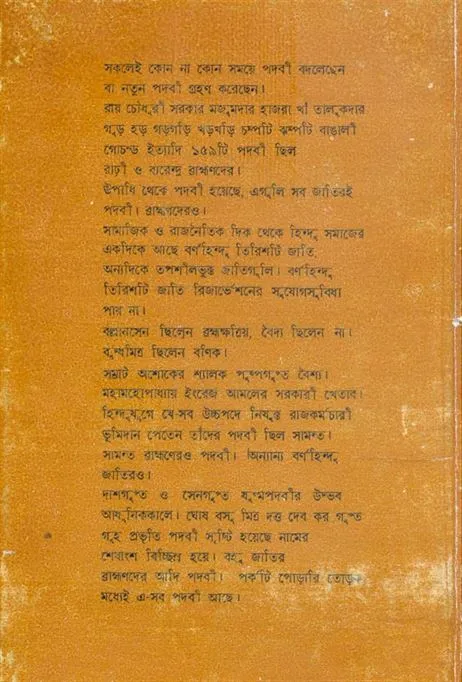 সকলেই কোন না কোন সময়ে পদবী বদলেছেন
বা নতুন পদবী গ্রহণ করেছেন।
রায় চৌধুরী সরকার মজুমদার হাজরা খাঁ তালুকদার
গুড় হড় গড়গড়ি খড়খড়ি চম্পটি ঝম্পটি বাঙালী
গোচন্ড ইত্যাদি ১৫৯টি পদবী ছিল
রাঢ়ী ও বারেন্দ্র ব্রাহ্মণদের।
উপাধি থেকে পদবী হয়েছে, এগুলি সব জাতিরই
পদবী। ব্রাহ্মণদেরও।
সামাজিক ও রাজনৈতিক দিক থেকে হিন্দু সমাজের
একদিকে আছে বর্ণহিন্দু তিরিশটি জাতি,
অন্যদিকে তপশীলভুক্ত জাতিগুলি। বর্ণহিন্দু
তিরিশটি জাতি রিজার্ভেশনের সুযোগসুবিধা
পায় না।
বল্লালসেন ছিলেন ব্রহ্মক্ষত্রিয়, বৈদ্য ছিলেন না।
বুদ্ধমিত্র ছিলেন বণিক।
সম্রাট অশোকের শ্যালক পুষ্পগুপ্ত বৈশ্য।
মহামহোপাধ্যায় ইংরেজ আমলের সরকারী খেতাব।
হিন্দুযুগে যে-সব উচ্চপদে নিযুক্ত রাজকর্মচারী
ভূমিদান পেতেন তাঁদের পদবী ছিল সামন্ত।
সামন্ত ব্রাহ্মণেরও পদবী। অন্যান্য বর্ণহিন্দু
জাতিরও।
দাশগুপ্ত ও সেনগুপ্ত যুগ্মপদবীর উদ্ভব
আধুনিককালে। ঘোষ বসু মিত্র দত্ত দেব কর গুপ্ত
গুহ প্রভৃতি পদবী সৃষ্টি হয়েছে নামের
শেষাংশ বিচ্ছিন্ন হয়ে। বহু জাতির
ব্রাহ্মণদের আদি পদবী। পর্কটি পোড়ারি তোড়ক
মধ্যেই এ-সব পদবী আছে।